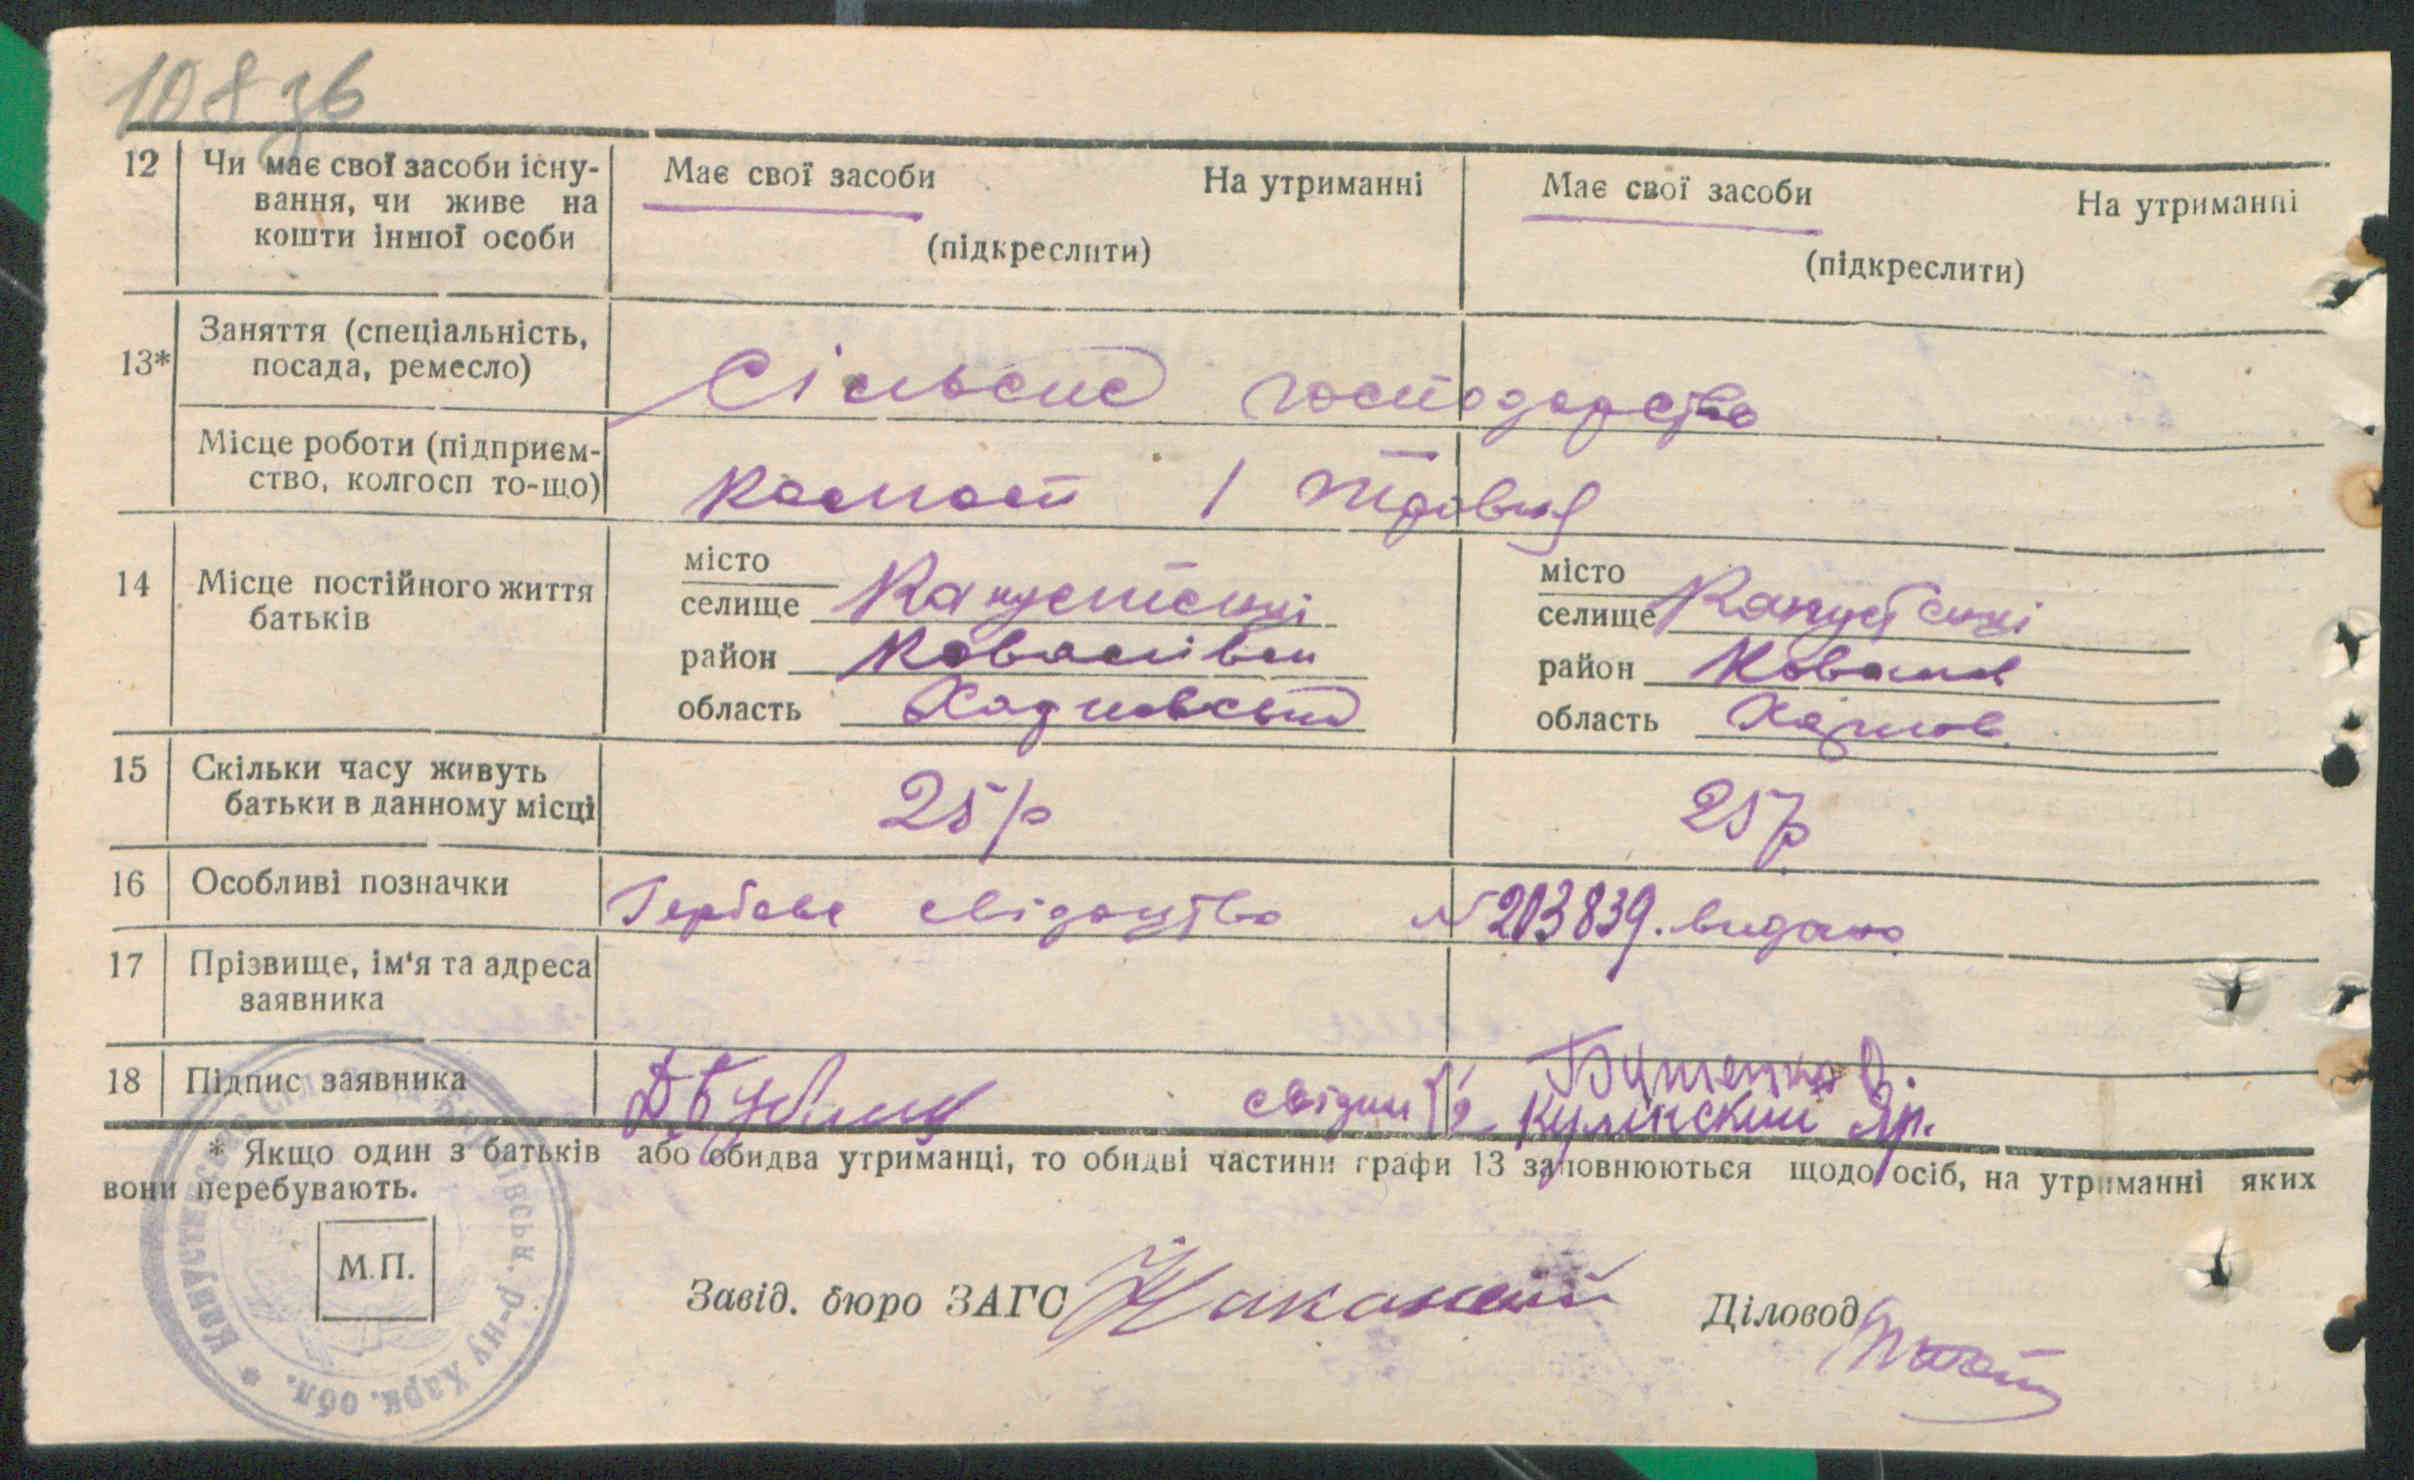 108 зв
12 Чи має свої засоби існу- Має свої засоби На утриманні Має свої засоби На утриманні
вання, чи живе на
кошти іншої особи (підкреслити) (підкреслити)
Заняття (спеціальність,
13* посада, ремесло) Сільське господарство
Місце роботи (підприєм-
ство, колгосп то-що) Колгосп 1 Травня
14 Місце постійного життя місто місто
батьків селище Капустенці селище Капустенці
район Ковалівськ район Ковалів
область Харковській область Харков
15 Скільки часу живуть 25 р 25 р
батьки в данному місці
16 Особливі позначки Гербове свідоцтво № 203839. видано
17 Прізвище, ім'я та адреса
заявника
18 Підпис заявника Д. Бублик свідки 1) Бутенко О.
2 Кулінский Яр.
* Якщо один з батьків або обидва утриманці, то обидві частини графи 13 заповнюються щодо осіб, на утриманні яких
вони перебувають.
М.П.
Завід. бюро ЗАГС Діловод
р-ну Харк. обл. *